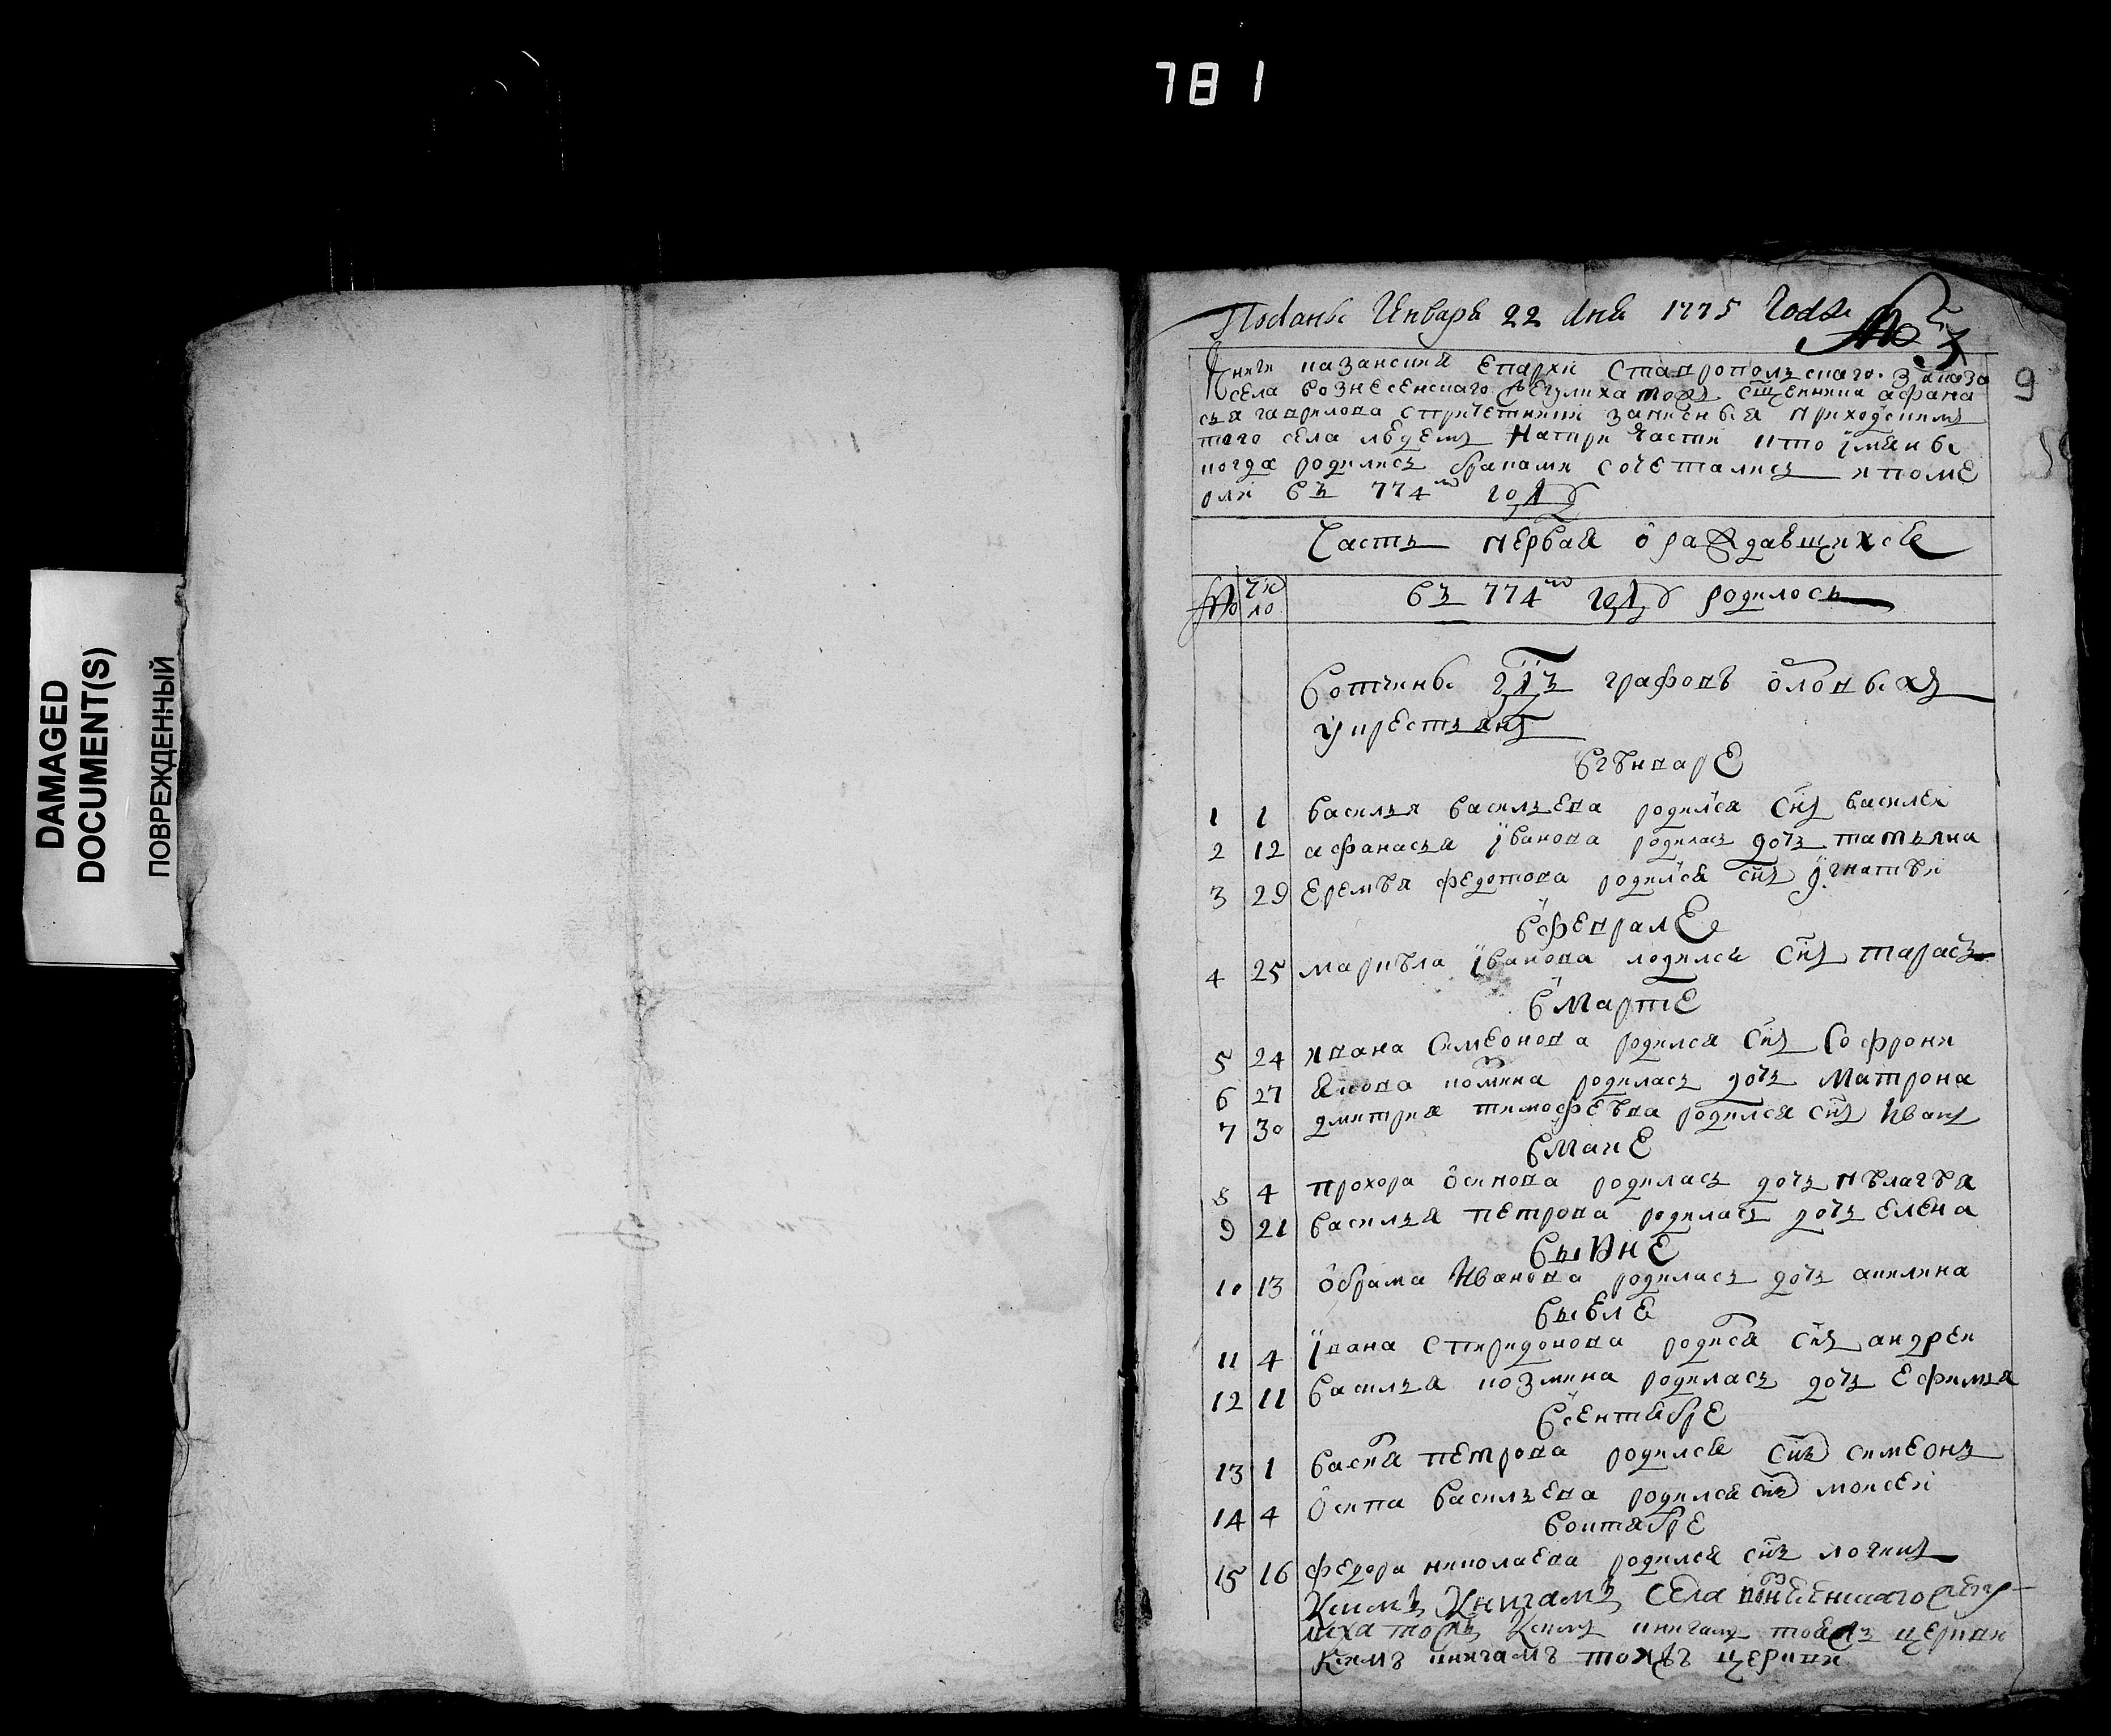 781
DAMAGED
DOCUMENT(S)
ПОВРЕЖДЕННЫЙ
Поданы Января 22 дня 1775 года № 3
9
Книги казанския епархи Ставропольскаго заказа
села вознесенскаго тожъ сщенника афана
сья гаврилова с причетники записныя приходскимъ
того села людемъ на три части кто имяны
когда родились браками сочетались и поме
рли въ 774м году
Часть первая о раждавшихся
№ число въ 774м году родилось
вотчины гдъ графовъ орловыхъ
у крестьянъ
вгенваре
1 1 василья васильева родился снъ василеи
2 12 афанасья иванова родилась дочь татьяна
3 29 еремѣя федотова родился снъ игнатѣи
вфеврале
4 25 маркѣла иванова родился снъ тарасъ
вмарте
5 24 ивана симеонова родился снъ софрони
6 27 якова комина родилась дочь матрона
7 30 дмитрия тимофеѣва родился снъ иванъ
вмаие
8 4 прохора осипова родилась дочь пѣлагѣя
9 21 василья петрова родилась дочь елена
выюне
10 13 обрама иванова родилась дочь акилина
выюле
11 4 ивана спиридонова родися снъ андреи
12 11 василья козмина родилась дочь ефимья
всентябре
13 1 васия петрова родился снъ симеонъ
14 4 осипа васильева родился снъ моисеи
воктябре
15 16 федора николаева родился снъ логинъ
Ксимъ книгамъ села вознесенскаго
тожъ ксимъ книгамъ тояжъ церкви
ксимъ книгамъ тояжъ церкви